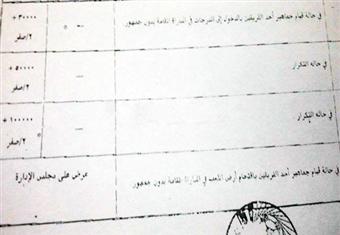 في حالة قيام جماهير أحد الفريقين بالدخول إلى المدرجات في المباراة المقامة بدون جمهور
--
٣٠٠٠٠ +
٢/صفر
في حالة التكرار
--
٥٠٠٠٠ +
٢/صفر
في حالة التكرار
--
١٠٠٠٠٠ +
٢/صفر
في حالة قيام جماهير أحد الفريقين باقتحام أرض الملعب في المباراة المقامة بدون جمهور
عرض على مجلس الإدارة